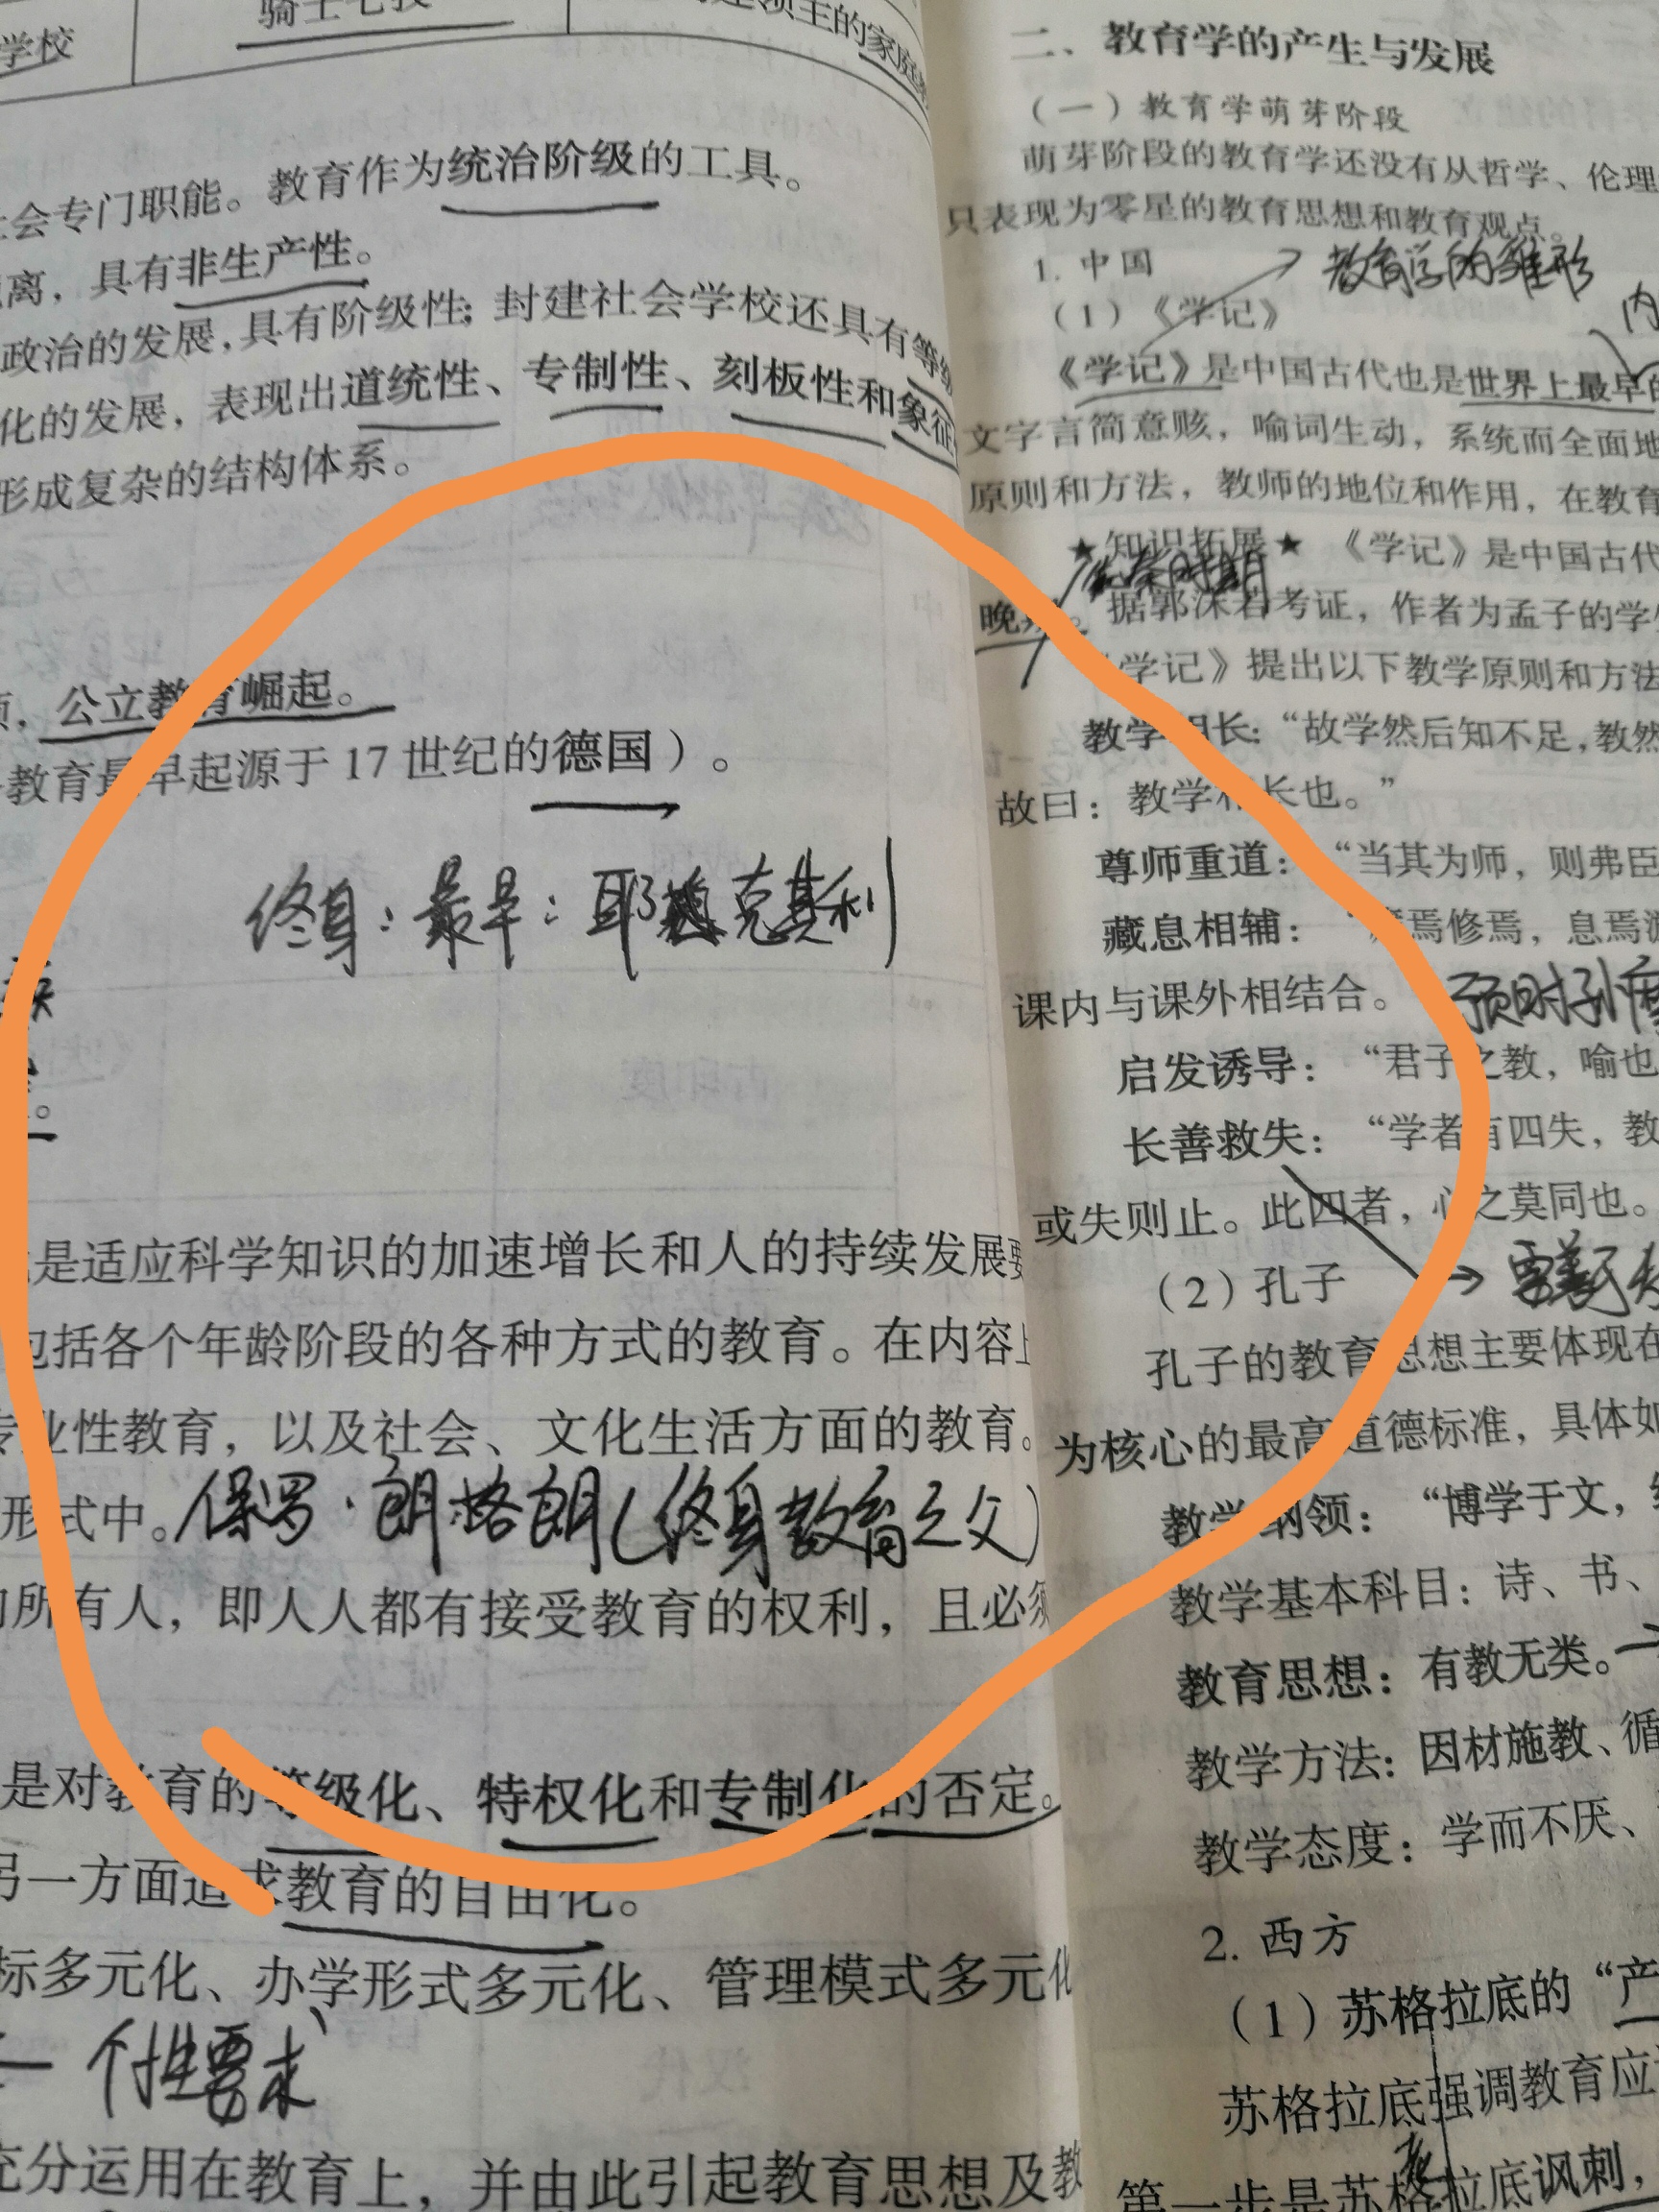 学校
骑士七技
主的家庭
社会专门职能。教育作为统治阶级的工具。
离，具有非生产性。
政治的发展，具有阶级性；封建社会学校还具有等级
化的发展，表现出道统性、专制性、刻板性和象征
形成复杂的结构体系。
公立教育崛起。
教育最早起源于17世纪的德国）。
终身：最早：耶克其利
是适应科学知识的加速增长和人的持续发展要
包括各个年龄阶段的各种方式的教育。在内容上
专业性教育，以及社会、文化生活方面的教育。
形式中。保罗·朗格朗（终身教育之父）
所有人，即人人都有接受教育的权利，且必须
是对教育的等级化、特权化和专制化的否定。
另一方面追求教育的自由化。
标多元化、办学形式多元化、管理模式多元化
个性要求
充分运用在教育上，并由此引起教育思想及教
二、教育学的产生与发展
（一）教育学萌芽阶段
萌芽阶段的教育学还没有从哲学、伦理
只表现为零星的教育思想和教育观点。
1. 中国
教育学的雏形
（1）《学记》
内
《学记》是中国古代也是世界上最早的
文字言简意赅，喻词生动，系统而全面地
原则和方法，教师的地位和作用，在教育
★知识拓展★ 《学记》是中国古代
先秦时期
晚期。据郭沫若考证，作者为孟子的学生
《学记》提出以下教学原则和方法
教学相长：“故学然后知不足，教然
故曰：教学相长也。”
尊师重道：“当其为师，则弗臣
藏息相辅：“藏焉修焉，息焉游
课内与课外相结合。
预时孙摩
启发诱导：“君子之教，喻也
长善救失：“学者有四失，教
或失则止。此四者，心之莫同也。
（2）孔子
孔子的教育思想主要体现在
为核心的最高道德标准，具体如
教学纲领：“博学于文，约
教学基本科目：诗、书、
教育思想：有教无类。
教学方法：因材施教、循
教学态度：学而不厌、
2. 西方
（1）苏格拉底的“产
苏格拉底强调教育应
第一步是苏格拉底讽刺，